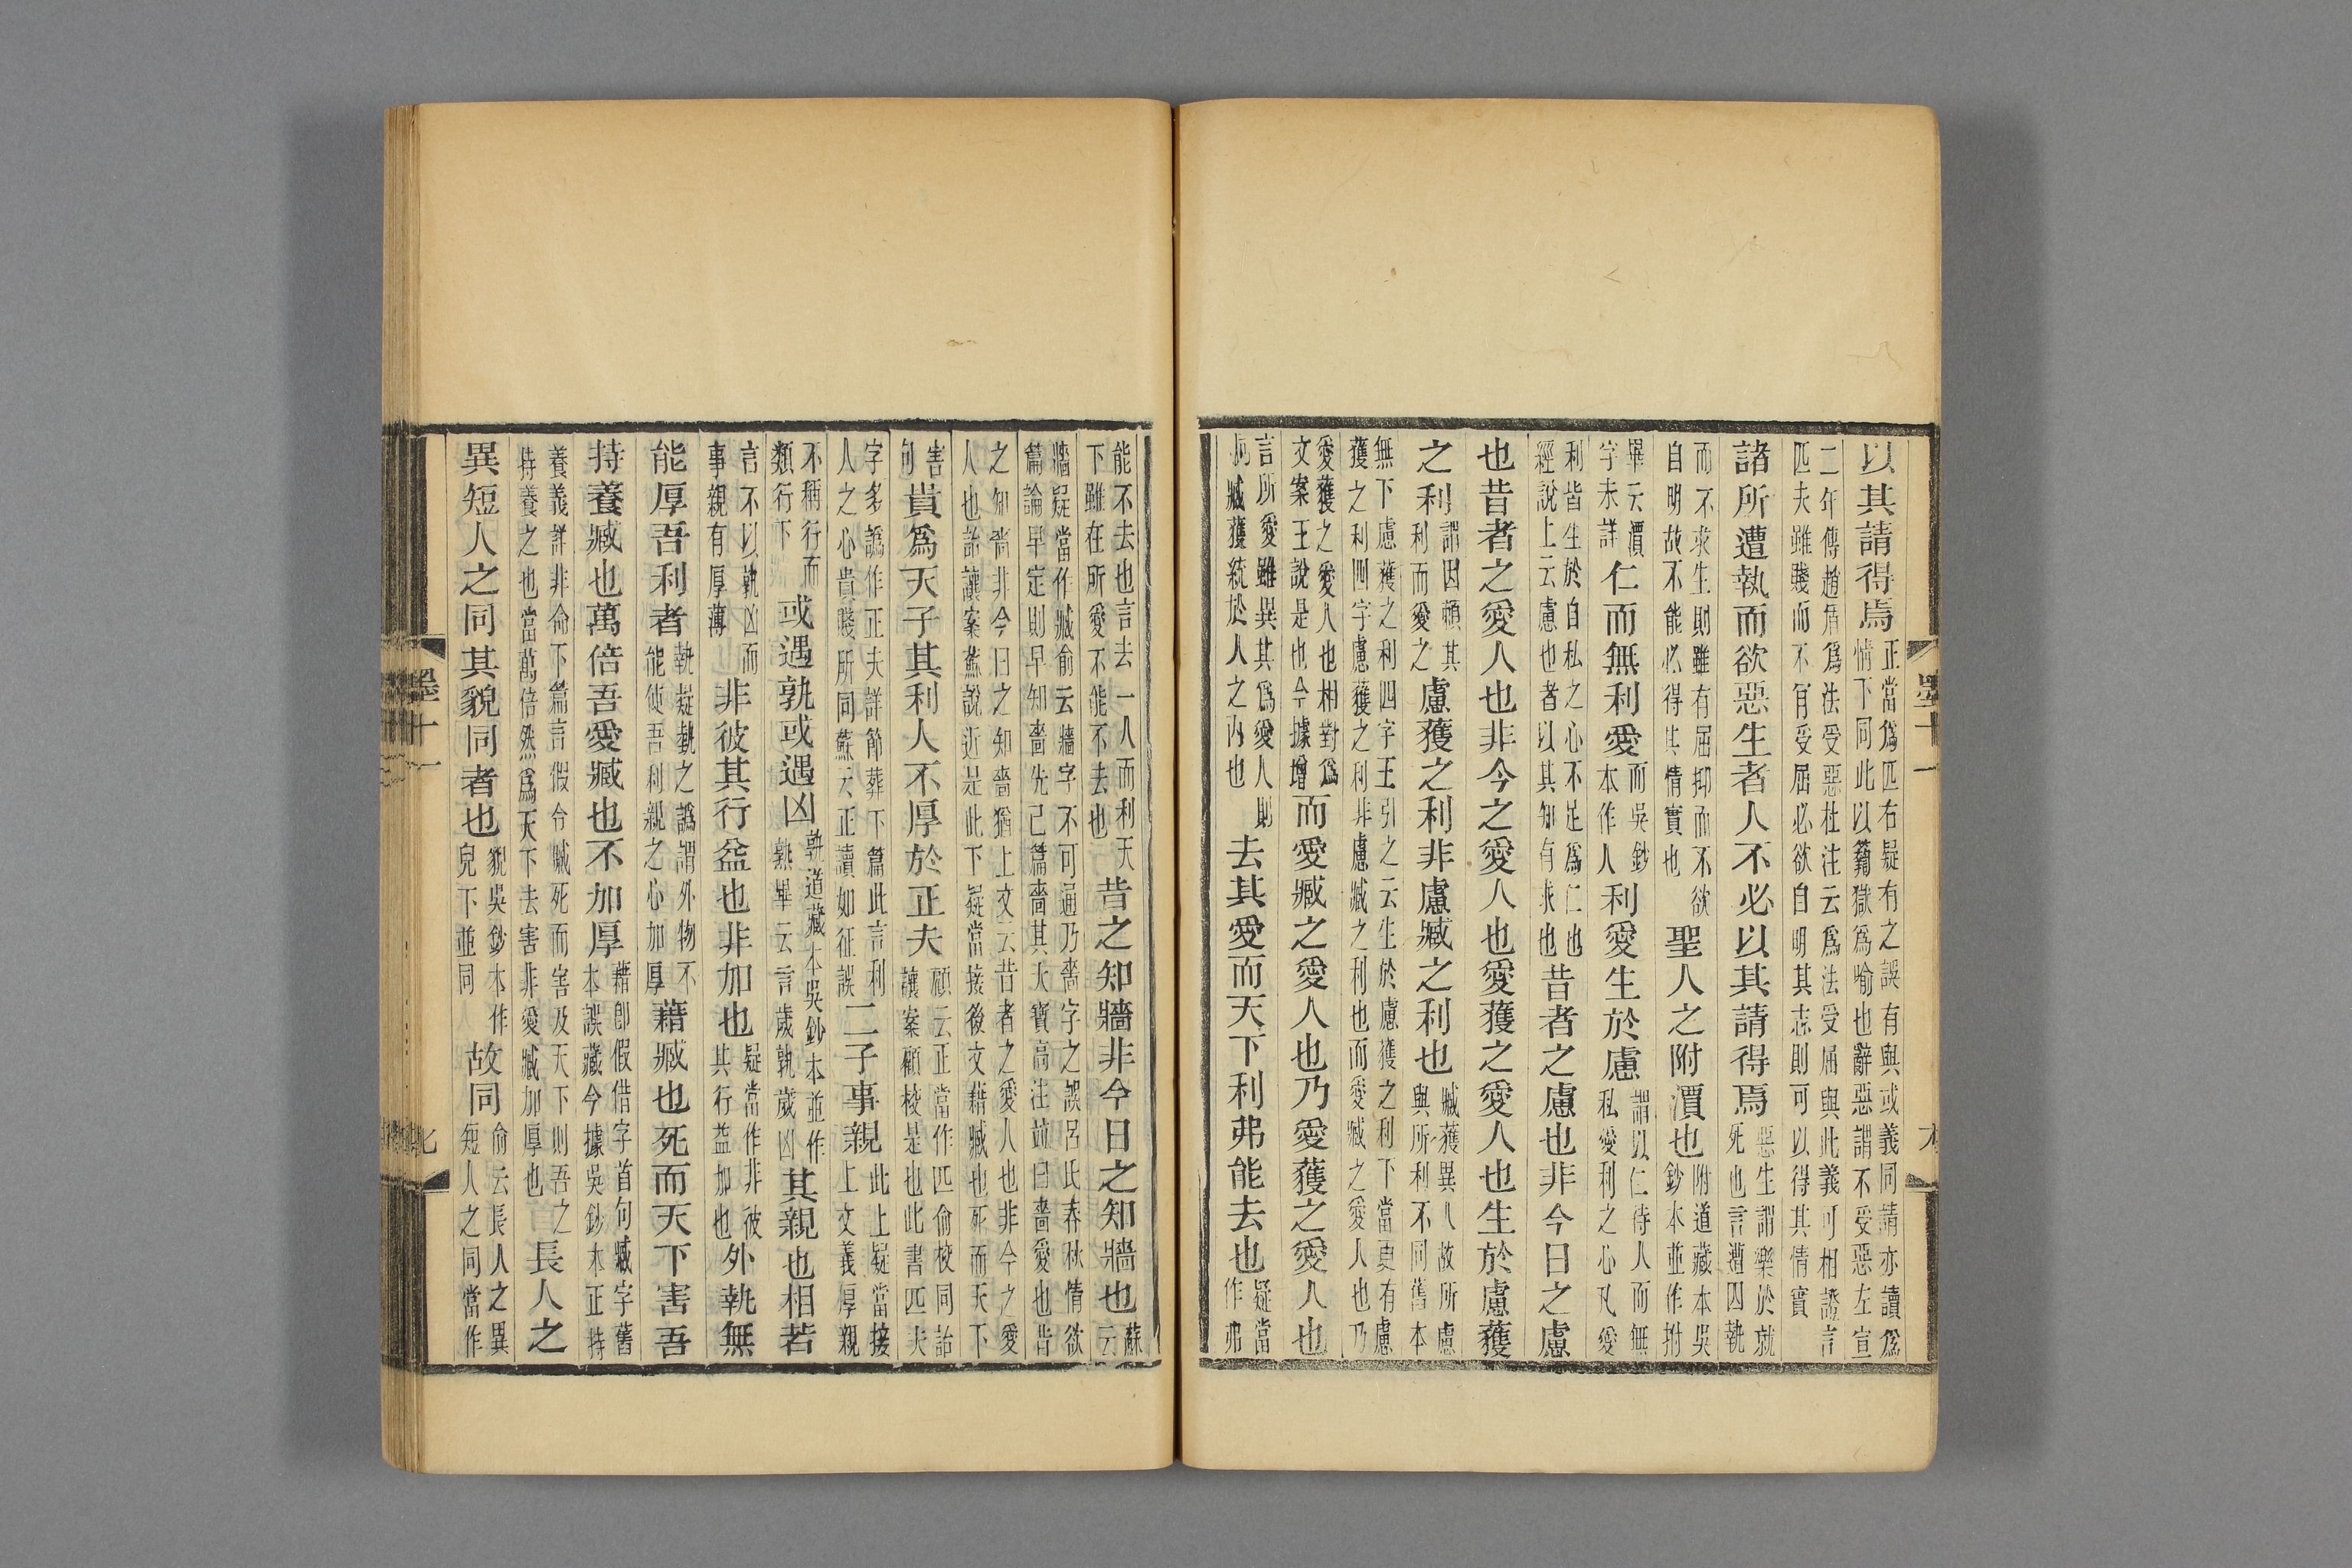 以其請得焉正當爲匹右疑有之誤有與或義同請亦讀爲情下同此以籀獄爲喻也辭惡謂不受惡左宣
二年傳趙盾爲法受惡杜注云爲法受屈與此義可相證言匹夫雖賤而不肯受屈必欲自明其志則可以得其情實
諸所遭執而欲惡生者人不必以其請得焉惡生謂樂於就死也言遭囚執
而不求生則雖有屈抑而不欲自明故不能必得其情實也聖人之附瀆也附道藏本吳鈔本並作拊
畢云瀆字未詳仁而無利愛而吳鈔本作人利愛生於慮謂以仁待人而無私愛利之心凡愛
利皆生於自私之心不足爲仁也經說上云慮也者以其知有求也昔者之慮也非今日之慮
也昔者之愛人也非今之愛人也愛獲之愛人也生於慮獲
之利謂因頼其利而愛之慮獲之利非慮臧之利也臧獲異人故所慮與所利不同舊本
無下慮獲之利四字王引之云生於慮獲之利下當更有慮獲之利四字慮獲之利非慮臧之利也而愛臧之愛人也乃
愛獲之愛人也相對爲文案王說是也今據增而愛臧之愛人也乃愛獲之愛人也
言所愛雖異其爲愛人則均臧獲統於人之內也去其愛而天下利弗能去也疑當作弗
墨十一
能不去也言去一人而利天下雖在所愛不能不去也昔之知牆非今日之知牆也蘇云
牆疑當作臧俞云牆字不可通乃嗇字之誤呂氏春秋情欲篇論早定則早知嗇先己篇嗇其大寶高注竝曰嗇愛也昔
之知嗇非今日之知嗇猶上文云昔者之愛人也非今之愛人也詒讓案蘇說近是此下疑當接後文藉臧也死而天下
害句貴爲天子其利人不厚於正夫顧云正當作匹俞校同詒讓案顧校是也此書匹夫
字多譌作正夫詳節葬下篇此言利人之心貴賤所同蘇云正讀如征誤二子事親此上疑當接上文義厚親
不稱行而類行下或遇孰或遇凶孰道藏本吳鈔本並作熟畢云言歲孰歲凶其親也相若
言不以孰凶而事親有厚薄非彼其行益也非加也疑當作非彼其行益加也外執無
能厚吾利者執疑埶之譌謂外物不能使吾利親之心加厚藉臧也死而天下害吾
持養臧也萬倍吾愛臧也不加厚藉卽假借字首句臧字舊本誤藏今據吳鈔本正持
養義詳非命下篇言假令臧死而害及天下則吾之持養之也當萬倍然爲天下去害非愛臧加厚也長人之
異短人之同其貌同者也貌吳鈔本作皃下並同故同俞云長人之異短人之同當作
墨十一